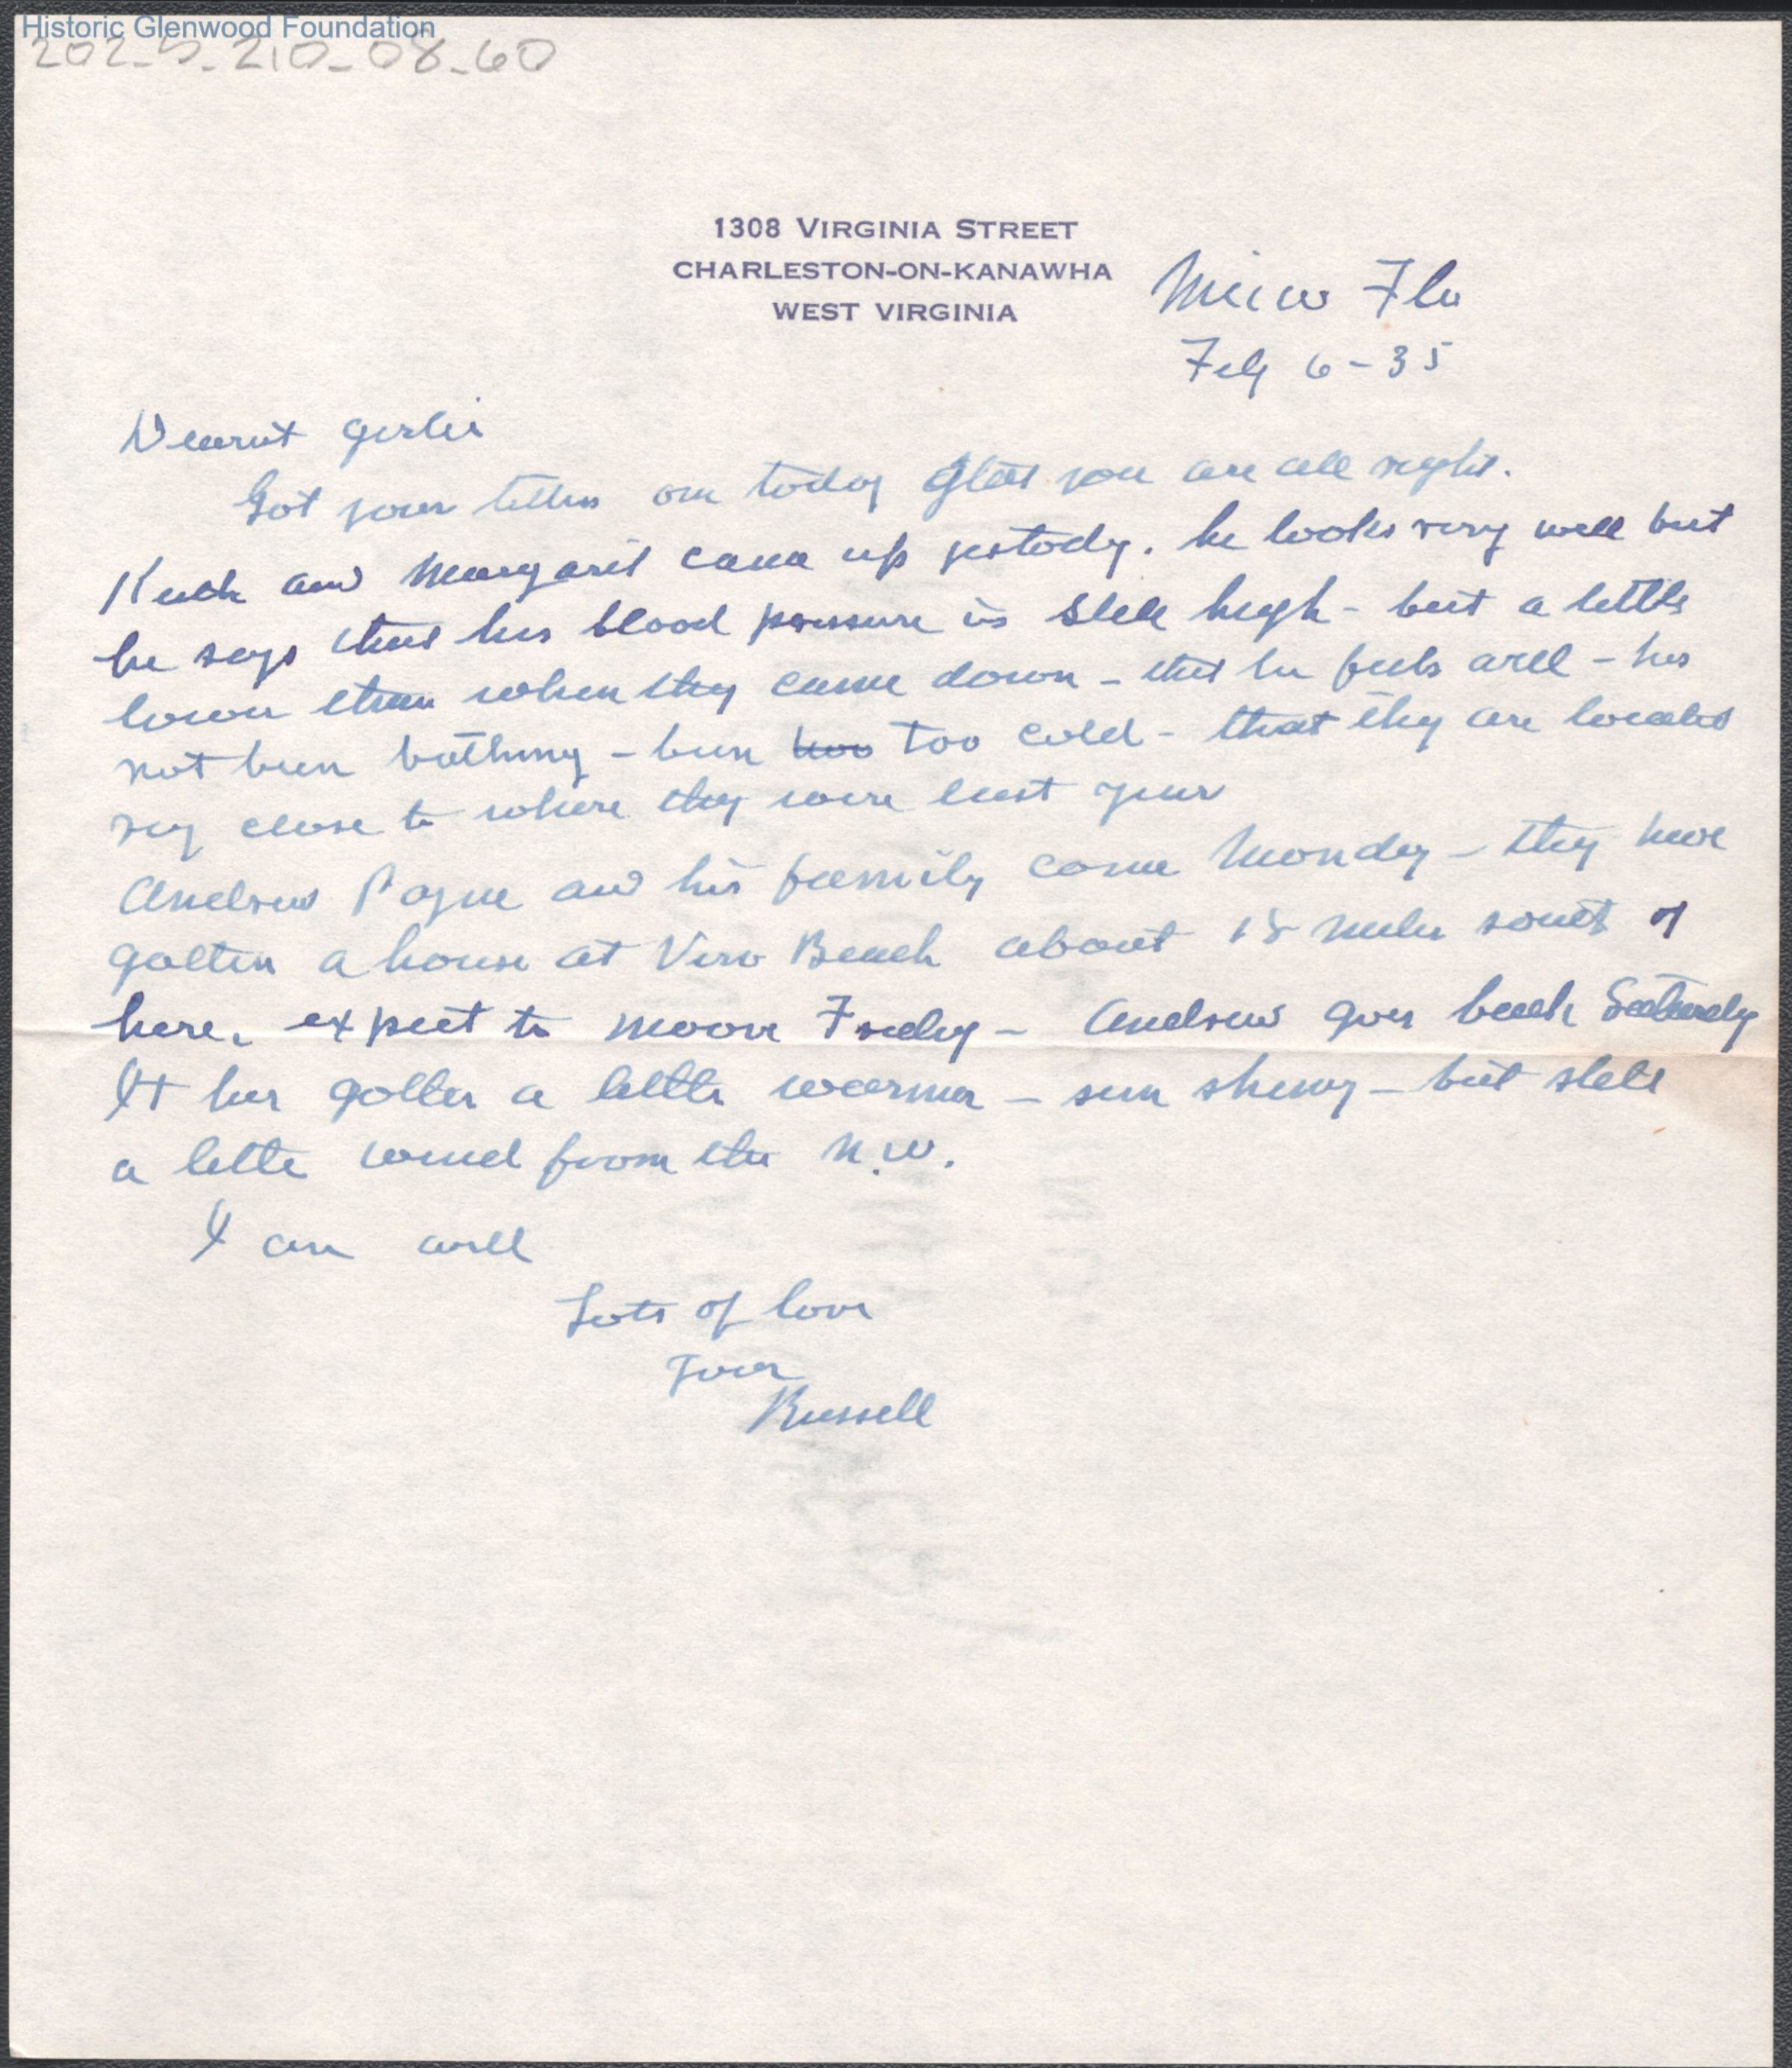 Historic Glenwood Foundation
202_5_210_08_60
1308 VIRGINIA STREET
CHARLESTON-ON-KANAWHA
WEST VIRGINIA
Micco Fla
Feb 6-35
Dearest Girlie
Got your letter on today Glad you are all right.
and Margaret came up yestody. he looks very well but
he says that his blood pressure is still high - but a little
lower than when they came down - that he feels well - has
not been bathing - been too cold - that they are located
very close to where they were last year
Andrew Payne and his family came Monday - they have
gotten a house at Vero Beach about 18 miles south of
here. expect to moove Friday - Andrew goes back Saturday
It has gotten a little warmer - sun shining - but still
a little wind from the N.W.
I am well
Lots of love
Your
Russell